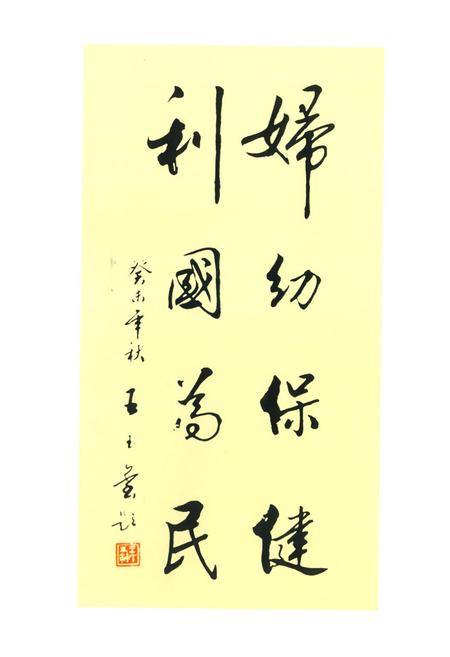 婦幼保健
利國為民
癸未年秋
題